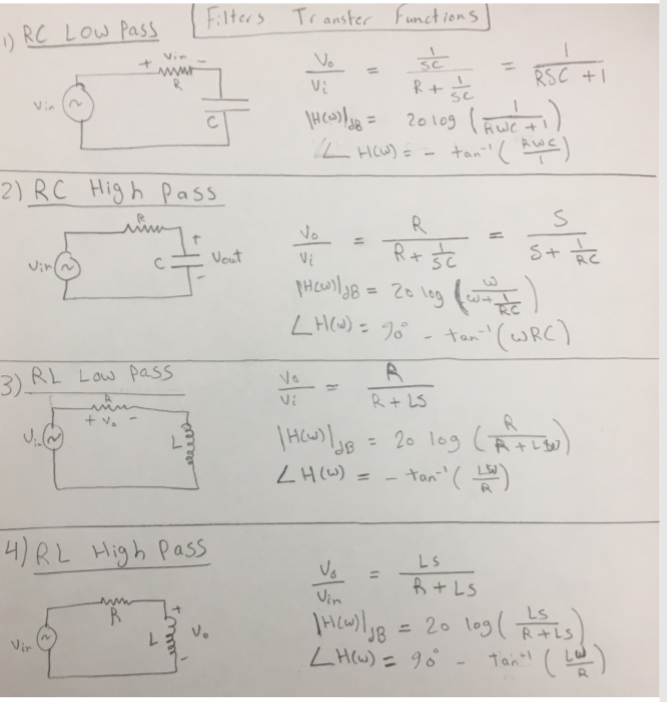 Filters Transfer Functions
1) RC Low Pass
+ Vin -
R
Vin
C
Vo/Vi = (1/SC)/(R + 1/SC) = 1/(RSC + 1)
|H(ω)|dB = 20 log (1/(RWC + 1))
∠ H(ω) = - tan⁻¹ (RWC/1)
2) RC High Pass
R
Vin
C
+
Vout
-
Vo/Vi = R/(R + 1/SC) = S/(S + 1/RC)
|H(ω)|dB = 20 log (ω/(ω + 1/RC))
∠ H(ω) = 90° - tan⁻¹ (ωRC)
3) RL Low Pass
R
+ Vo -
Vin
L
Vo/Vi = R/(R + LS)
|H(ω)|dB = 20 log (R/(R + Lω))
∠ H(ω) = - tan⁻¹ (Lω/R)
4) RL High Pass
R
Vin
L
+
Vo
-
Vo/Vin = LS/(R + LS)
|H(ω)|dB = 20 log (LS/(R + LS))
∠ H(ω) = 90° - tan⁻¹ (Lω/R)